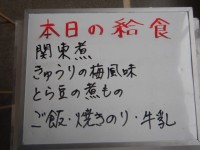 本日の給食
関東煮
きゅうりの梅風味
とら豆の煮もの
ご飯・焼きのり・牛乳